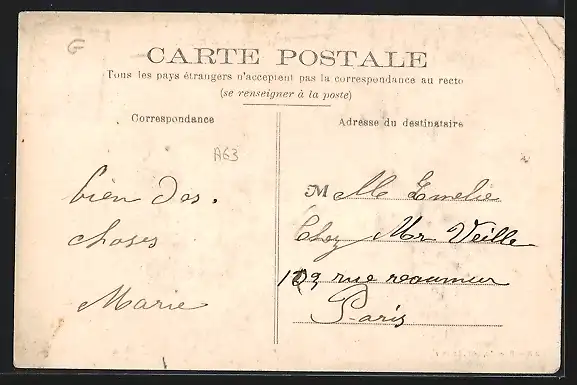 CARTE POSTALE
Tous les pays étrangers n'acceptent pas la correspondance au recto
(se renseigner à la poste)
Correspondance
A63
bien des.
choses
Marie
Adresse du destinataire
M Mlle Emelie
Chez Mr Veille
109 rue reaumur
Paris